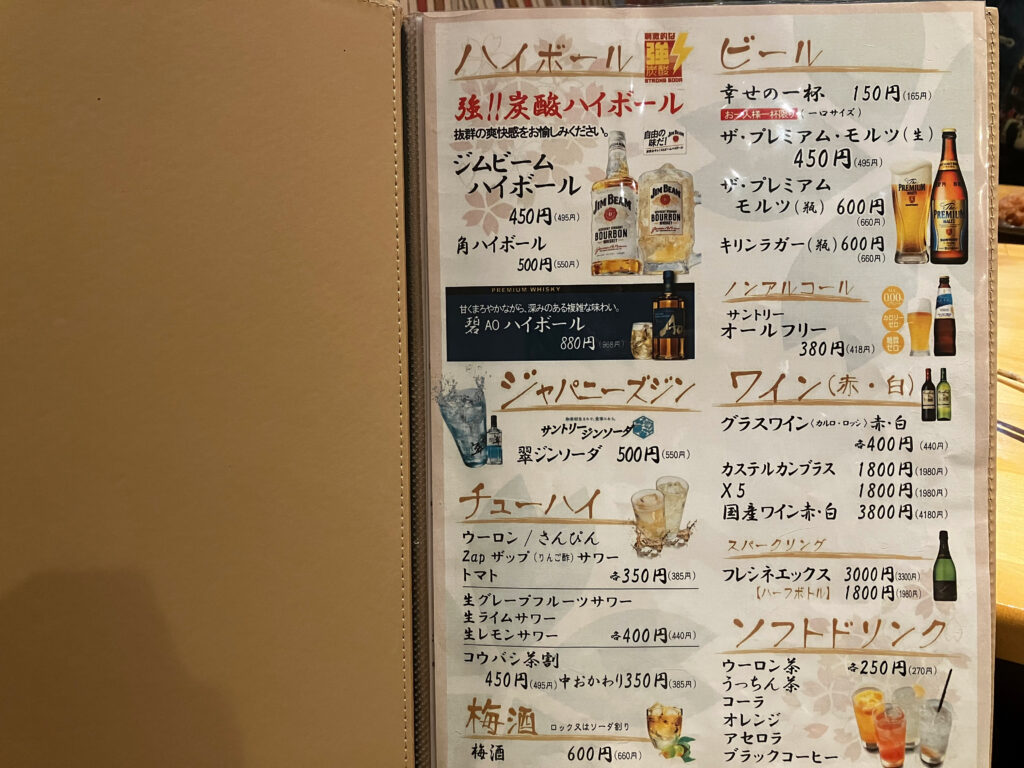 ハイボール
刺激的な
強
炭酸
STRONG SODA
強!!炭酸ハイボール
抜群の爽快感をお愉しみください。
自由の
味だ!
ジムビーム
ハイボール
450円(495円)
JIM BEAM
BOURBON
WHISKEY
JIM BEAM
BOURBON
角ハイボール
500円(550円)
PREMIUM WHISKY
甘くまろやかながら、深みのある複雑な味わい。
碧 AO ハイボール
880円(968円)
Ao
ジャパニーズジン
サントリージンソーダ
翠ジンソーダ 500円(550円)
チューハイ
ウーロン / さんぴん
Zap ザップ(りんご酢) サワー
トマト 各350円(385円)
生グレープフルーツサワー
生ライムサワー
生レモンサワー 各400円(440円)
コウバシ茶割
450円(495円)中おかわり350円(385円)
梅酒 ロック又はソーダ割り
梅酒 600円(660円)
ビール
幸せの一杯 150円(165円)
お一人様一杯限り (一口サイズ)
ザ・プレミアム・モルツ(生)
450円(495円)
ザ・プレミアム
モルツ(瓶) 600円
(660円)
The PREMIUM
MALT'S
The PREMIUM
MALT'S
キリンラガー(瓶)600円
(660円)
ノンアルコール
サントリー
オールフリー
380円(418円)
0.00%
カロリー
ゼロ
糖質
ゼロ
ワイン(赤・白)
グラスワイン(カルロ・ロッシ)赤・白
各400円(440円)
カステルカンブラス 1800円(1980円)
X5 1800円(1980円)
国産ワイン赤・白 3800円(4180円)
スパークリング
フレシネエックス 3000円(3300円)
【ハーフボトル】 1800円(1980円)
ソフトドリンク
ウーロン茶 各250円(270円)
うっちん茶
コーラ
オレンジ
アセロラ
ブラックコーヒー